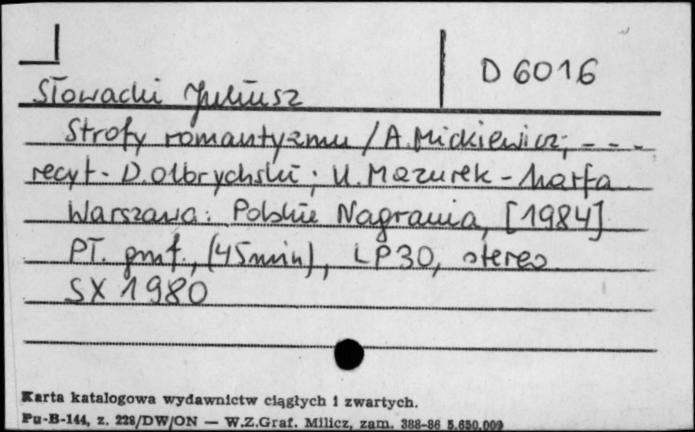 D 6016
Słowacki Juliusz
Strofy romantyzmu / A. Mickiewicz; - - -
recyt. D. Olbrychski; U. Mazurek - harfa
Warszawa: Polskie Nagrania, [1984]
PŁ. gmf., (45min), LP30, stereo
SX 1980
Karta katalogowa wydawnictw ciągłych i zwartych.
Pu-B-144, z. 228/DW/ON — W.Z.Graf. Milicz, zam. 388-86 5.650.000